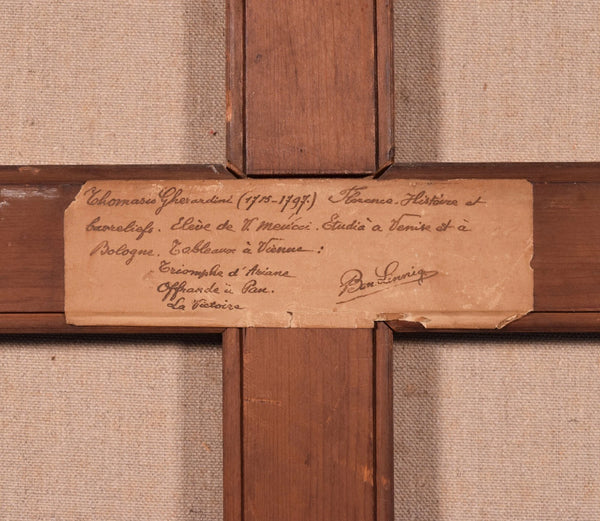 Thomaso Gherardini (1715-1797.) Florence. Histoire et
basreliefs. Elève de V. Meucci. Etudia à Venise et à
Bologne. Tableaux à Vienne :
Triomphe d'Ariane
Offrande à Pan.
La Victoire
Ben Linnig